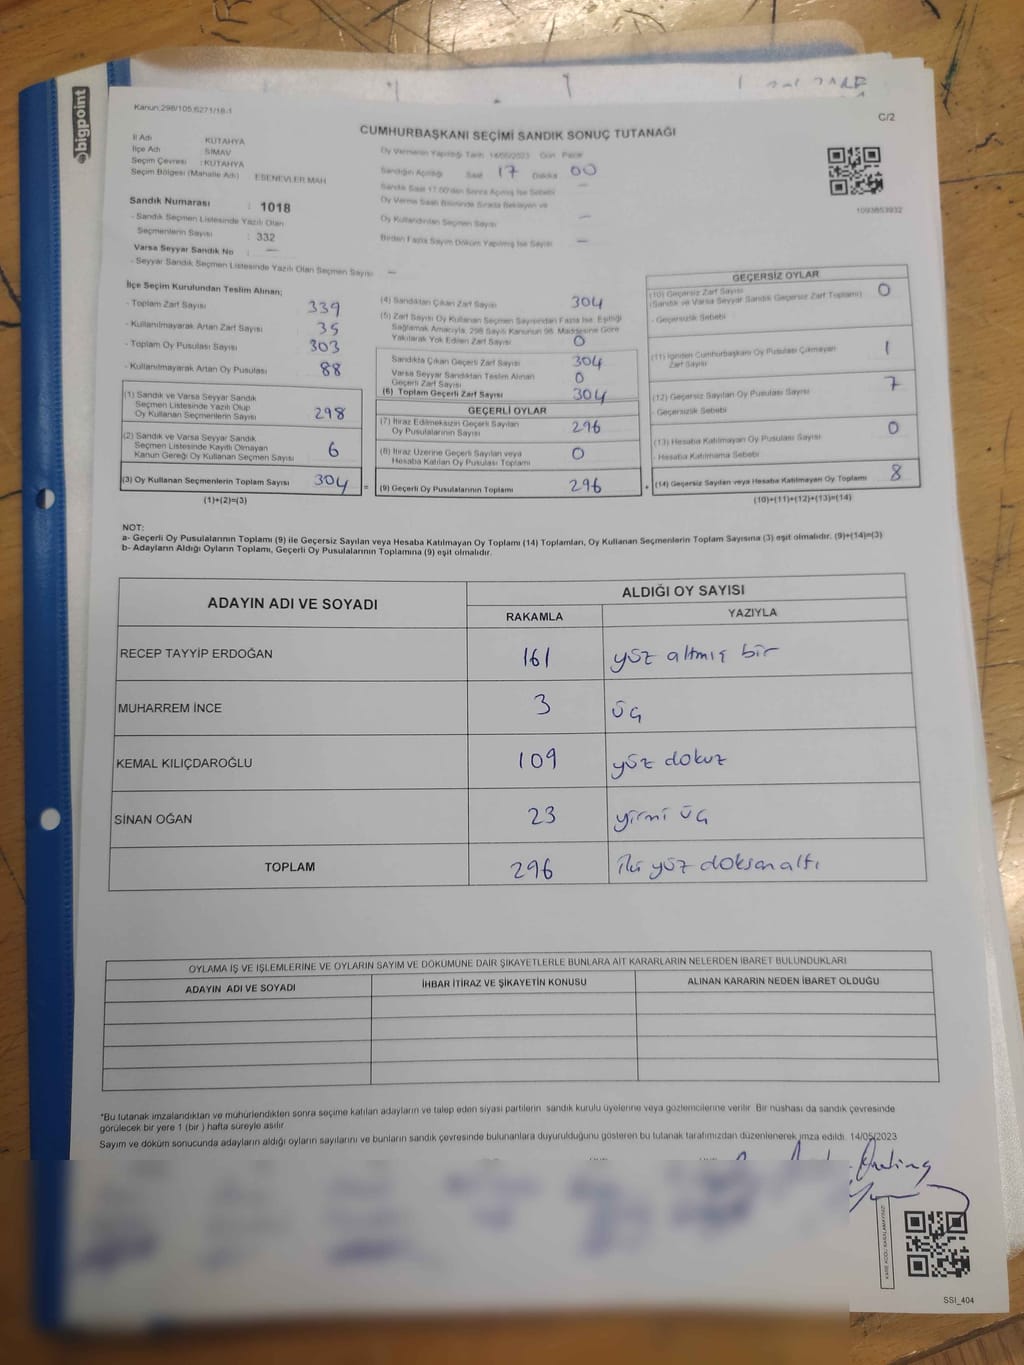 bigpoint
Kanun:298/105,6271/18-1
C/2
CUMHURBAŞKANI SEÇİMİ SANDIK SONUÇ TUTANAĞI
İl Adı KÜTAHYA
İlçe Adı : SİMAV
Seçim Çevresi : KÜTAHYA
Seçim Bölgesi (Mahalle Adı) : ESENEVLER MAH
Sandık Numarası : 1018
- Sandık Seçmen Listesinde Yazılı Olan
Seçmenlerin Sayısı : 332
Varsa Seyyar Sandık No : —
- Seyyar Sandık Seçmen Listesinde Yazılı Olan Seçmen Sayısı —
Oy Vermenin Yapıldığı Tarih 14/05/2023 Gün Pazar
Sandığın Açıldığı Saat 17 Dakika 00
Sandık Saat 17.00'den Sonra Açılmış İse Sebebi —
Oy Verme Saati Bitiminde Sırada Bekleyen ve
Oy Kullandırılan Seçmen Sayısı —
Birden Fazla Sayım Döküm Yapılmış İse Sayısı —
1093853932
İlçe Seçim Kurulundan Teslim Alınan;
- Toplam Zarf Sayısı 339
- Kullanılmayarak Artan Zarf Sayısı 35
- Toplam Oy Pusulası Sayısı 303
- Kullanılmayarak Artan Oy Pusulası 88
(1) Sandık ve Varsa Seyyar Sandık
Seçmen Listesinde Yazılı Olup
Oy Kullanan Seçmenlerin Sayısı 298
(2) Sandık ve Varsa Seyyar Sandık
Seçmen Listesinde Kayıtlı Olmayan
Kanun Gereği Oy Kullanan Seçmen Sayısı 6
(3) Oy Kullanan Seçmenlerin Toplam Sayısı 304 =
(1)+(2)=(3)
(4) Sandıktan Çıkan Zarf Sayısı 304
(5) Zarf Sayısı Oy Kullanan Seçmen Sayısından Fazla İse, Eşitliği
Sağlamak Amacıyla, 298 Sayılı Kanunun 98. Maddesine Göre
Yakılarak Yok Edilen Zarf Sayısı 0
Sandıkta Çıkan Geçerli Zarf Sayısı 304
Varsa Seyyar Sandıktan Teslim Alınan
Geçerli Zarf Sayısı 0
(6) Toplam Geçerli Zarf Sayısı 304
GEÇERLİ OYLAR
(7) İtiraz Edilmeksizin Geçerli Sayılan
Oy Pusulalarının Sayısı 296
(8) İtiraz Üzerine Geçerli Sayılan veya
Hesaba Katılan Oy Pusulası Toplamı 0
(9) Geçerli Oy Pusulalarının Toplamı 296 +
GEÇERSİZ OYLAR
(10) Geçersiz Zarf Sayısı 0
(Sandık ve Varsa Seyyar Sandık Geçersiz Zarf Toplamı)
- Geçersizlik Sebebi
(11) İçinden Cumhurbaşkanı Oy Pusulası Çıkmayan
Zarf Sayısı 1
(12) Geçersiz Sayılan Oy Pusulası Sayısı 7
- Geçersizlik Sebebi
(13) Hesaba Katılmayan Oy Pusulası Sayısı 0
- Hesaba Katılmama Sebebi
(14) Geçersiz Sayılan veya Hesaba Katılmayan Oy Toplamı 8
(10)+(11)+(12)+(13)=(14)
NOT:
a- Geçerli Oy Pusulalarının Toplamı (9) ile Geçersiz Sayılan veya Hesaba Katılmayan Oy Toplamı (14) Toplamları, Oy Kullanan Seçmenlerin Toplam Sayısına (3) eşit olmalıdır. (9)+(14)=(3)
b- Adayların Aldığı Oyların Toplamı, Geçerli Oy Pusulalarının Toplamına (9) eşit olmalıdır.
ADAYIN ADI VE SOYADI ALDIĞI OY SAYISI
RAKAMLA YAZIYLA
RECEP TAYYİP ERDOĞAN 161 yüz altmış bir
MUHARREM İNCE 3 üç
KEMAL KILIÇDAROĞLU 109 yüz dokuz
SİNAN OĞAN 23 yirmi üç
TOPLAM 296 iki yüz doksan altı
OYLAMA İŞ VE İŞLEMLERİNE VE OYLARIN SAYIM VE DÖKÜMÜNE DAİR ŞİKAYETLERLE BUNLARA AİT KARARLARIN NELERDEN İBARET BULUNDUKLARI
ADAYIN ADI VE SOYADI İHBAR İTİRAZ VE ŞİKAYETİN KONUSU ALINAN KARARIN NEDEN İBARET OLDUĞU
*Bu tutanak imzalandıktan ve mühürlendikten sonra seçime katılan adayların ve talep eden siyasi partilerin sandık kurulu üyelerine veya gözlemcilerine verilir. Bir nüshası da sandık çevresinde
görülecek bir yere 1 (bir) hafta süreyle asılır.
Sayım ve döküm sonucunda adayların aldığı oyların sayılarını ve bunların sandık çevresinde bulunanlara duyurulduğunu gösteren bu tutanak tarafımızdan düzenlenerek imza edildi. 14/05/2023
KARE KODU KARALAMAYINIZ!
SSI_404